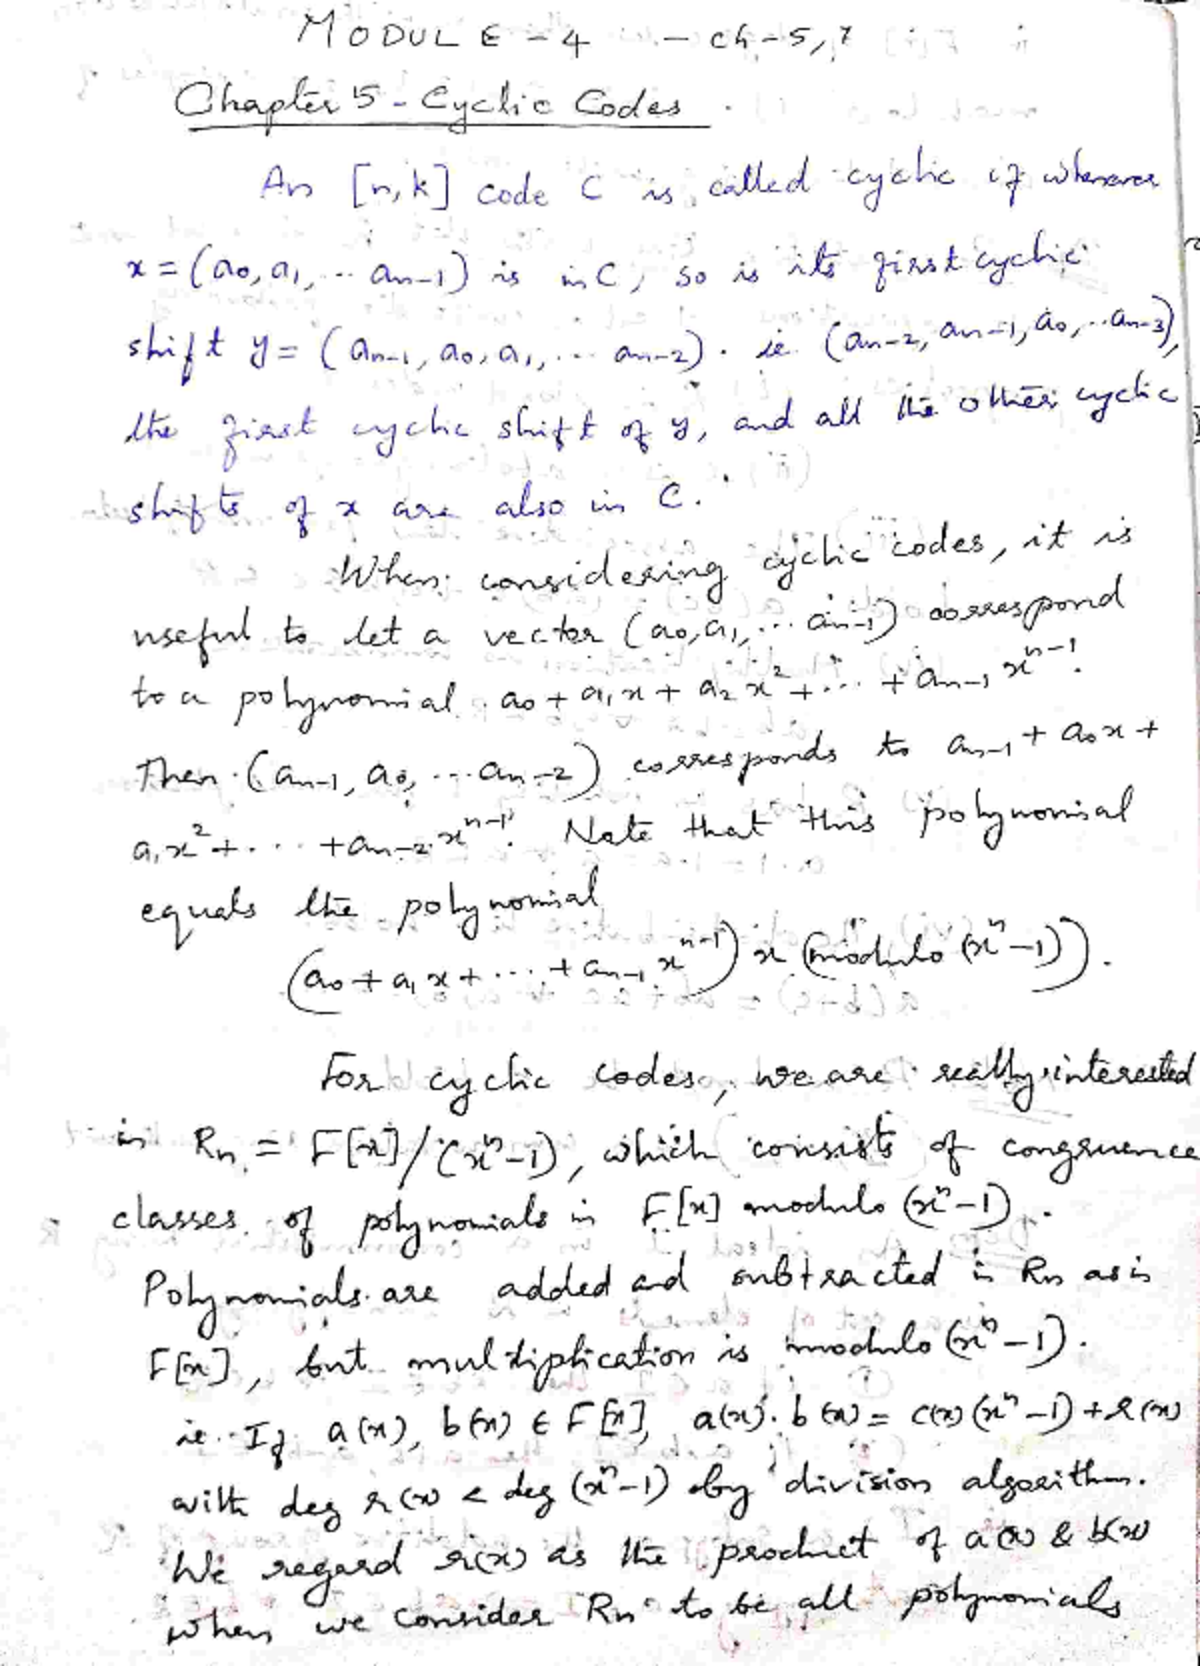 MODULE - 4 - ch - 5, 7
Chapter 5 - Cyclic Codes.
An [n, k] code C is called cyclic if whenever
x = (a₀, a₁, ... aₙ₋₁) is in C, so is its first cyclic
shift y = (aₙ₋₁, a₀, a₁, ... aₙ₋₂). ie (aₙ₋₂, aₙ₋₁, a₀, ..aₙ₋₃),
the first cyclic shift of y, and all the other cyclic
shifts of x are also in C.
When considering cyclic codes, it is
useful to let a vector (a₀, a₁, ... aₙ₋₁) correspond
to a polynomial a₀ + a₁x + a₂x² + ... + aₙ₋₁xⁿ⁻¹.
Then (aₙ₋₁, a₀, ... aₙ₋₂) corresponds to aₙ₋₁ + a₀x +
a₁x² + ... + aₙ₋₂xⁿ⁻¹. Note that this polynomial
equals the polynomial
(a₀ + a₁x + ... + aₙ₋₁xⁿ⁻¹) x (modulo (xⁿ-1)).
For cyclic codes, we are really interested
in Rₙ = F[x]/(xⁿ-1), which consists of congruence
classes of polynomials in F[x] modulo (xⁿ-1).
Polynomials are added and subtracted in Rₙ as in
F[x], but multiplication is modulo (xⁿ-1).
ie. If a(x), b(x) ∈ F[x], a(x). b(x) = c(x) (xⁿ-1) + r(x)
with deg r(x) < deg (xⁿ-1) by division algorithm.
We regard r(x) as the product of a(x) & b(x)
when we consider Rₙ to be all polynomials